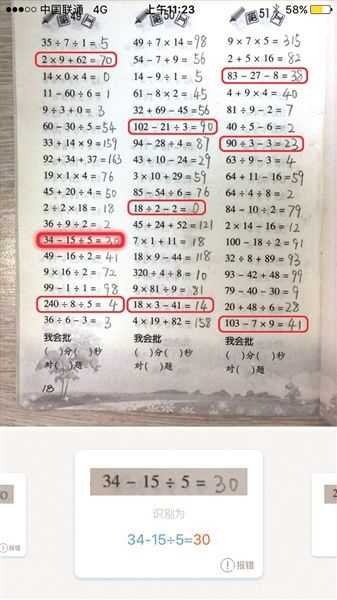 中国联通 4G 上午11:23 58%
49
35 ÷ 7 ÷ 1 = 5
2 × 9 + 62 = 70
14 × 0 × 4 = 0
11 − 60 ÷ 6 = 1
9 ÷ 3 + 0 = 3
60 − 30 ÷ 5 = 54
33 + 14 × 9 = 159
92 + 34 + 37 = 163
19 × 1 × 4 = 76
45 + 20 ÷ 4 = 50
2 ÷ 2 × 18 = 18
36 ÷ 9 ÷ 2 = 2
34 − 15 ÷ 5 = 30
49 − 16 ÷ 2 = 41
9 × 16 ÷ 2 = 72
99 − 1 ÷ 1 = 98
240 ÷ 8 ÷ 5 = 4
36 ÷ 6 − 3 = 3
我会批
( )分( )秒
对( )题
18
50
49 ÷ 7 × 14 = 98
54 − 7 + 9 = 56
14 − 9 ÷ 1 = 5
61 − 8 × 2 = 45
32 + 69 − 45 = 56
102 − 21 ÷ 3 = 90
94 − 28 ÷ 4 = 87
43 + 10 − 24 = 29
3 × 10 + 29 = 59
85 − 54 ÷ 6 = 76
18 ÷ 2 − 2 = 0
45 + 24 + 52 = 121
7 × 1 + 11 = 18
18 × 9 − 44 = 118
320 ÷ 4 ÷ 8 = 10
9 × 81 ÷ 9 = 81
18 × 3 − 41 = 14
4 × 19 + 82 = 158
我会批
( )分( )秒
对( )题
51
9 × 7 × 5 = 315
2 + 5 × 16 = 82
83 − 27 − 8 = 38
4 + 9 × 4 = 40
81 ÷ 9 − 2 = 7
40 ÷ 5 − 6 = 2
90 ÷ 3 − 3 = 23
63 ÷ 9 − 3 = 4
64 + 11 − 16 = 59
64 ÷ 4 ÷ 8 = 2
84 − 10 ÷ 2 = 79
2 × 14 − 16 = 12
100 − 18 ÷ 2 = 91
32 ÷ 8 + 89 = 93
93 − 42 + 48 = 99
79 − 40 − 30 = 9
20 + 48 ÷ 6 = 28
103 − 7 × 9 = 41
我会批
( )分( )秒
对( )题
34 − 15 ÷ 5 = 30
识别为
34-15÷5=30
报错
报错